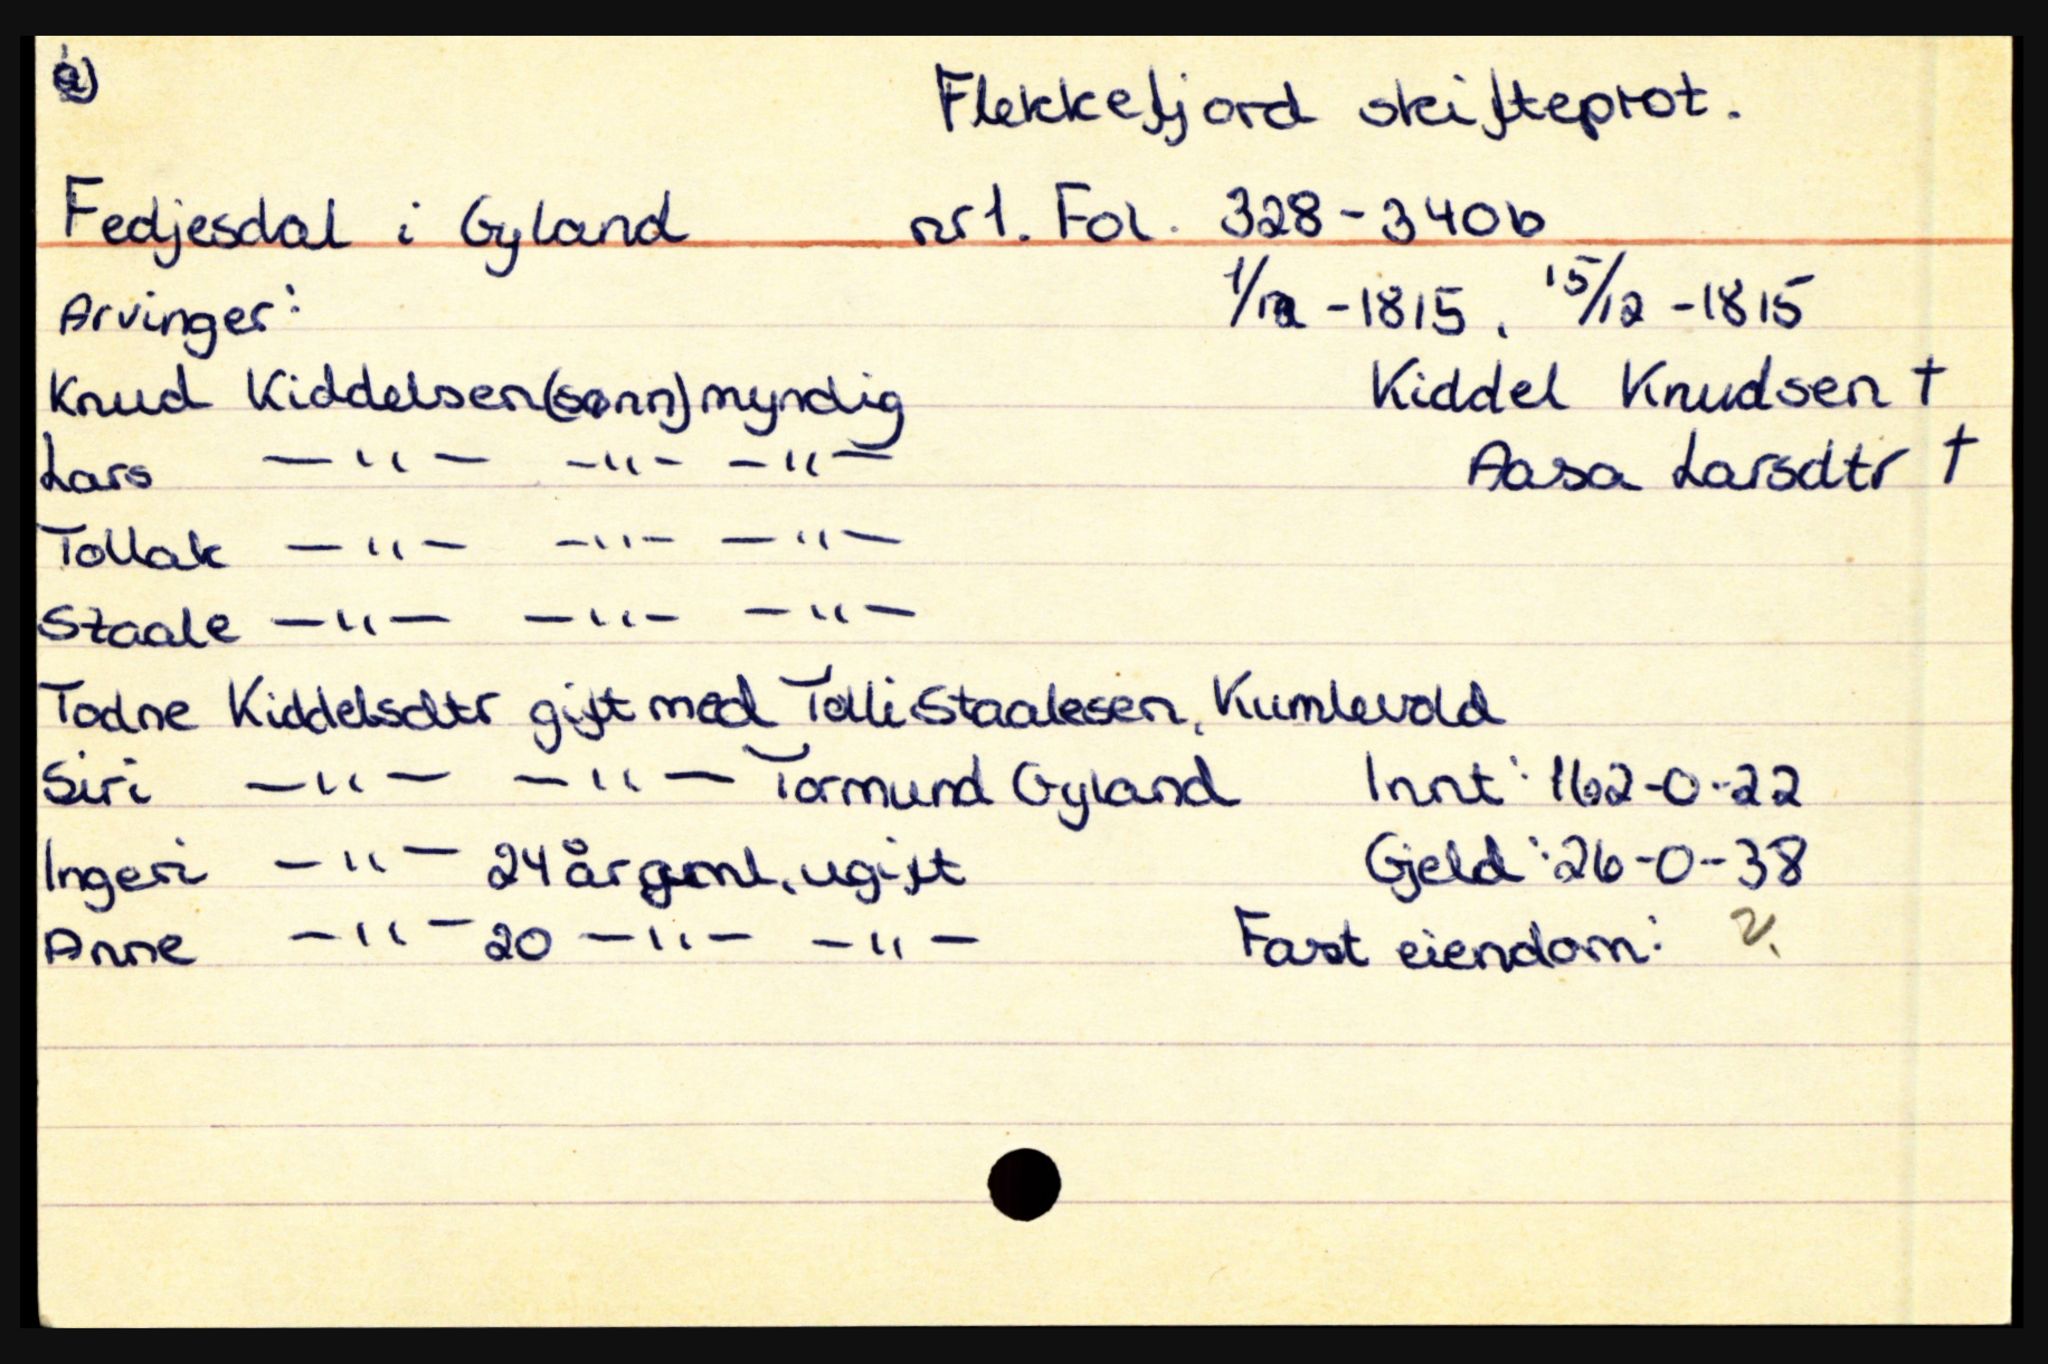 Flekkefjord skifteprot.
Fedjesdal i Gyland nr 1. Fol. 328-340b
Arvinger: 1/12 -1815, 15/12 -1815
Knud Kiddelsen (sønn) myndig Kiddel Knudsen †
Lars —"— —"— —"— Aasa Larsdtr †
Tollak —"— —"— —"—
Staale —"— —"— —"—
Todne Kiddelsdtr gift med Tolli Staalesen, Kumlevold
Siri —"— —"— Tormund Gyland Innt: 162-0-22
Ingeri —"— 24 år gml, ugift Gjeld: 26-0-38
Anne —"— 20 —"— —"— Fast eiendom: